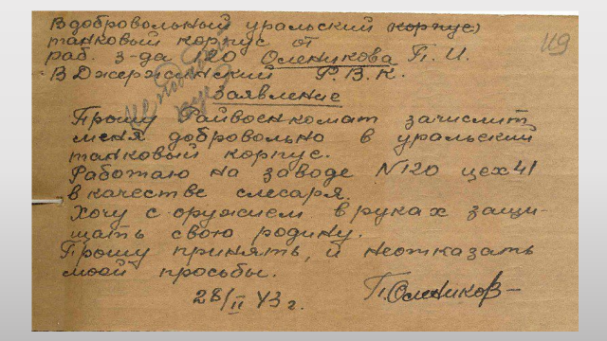 В добровольный уральский корпус)
танковый корпус от
раб. з-да 120 Оленикова П. И.
В Джержинский Р.В.К.
Заявление
119
Прошу Райвоенкомат зачислит
меня добровольно в уральский
танковый корпус.
Работаю на заводе N120 цех 41
в качестве слесаря.
Хочу с оружием в руках защи-
щать свою родину.
Прошу принять, и неотказать
моей просьбы.
28/II 43 г.
П.Олеников